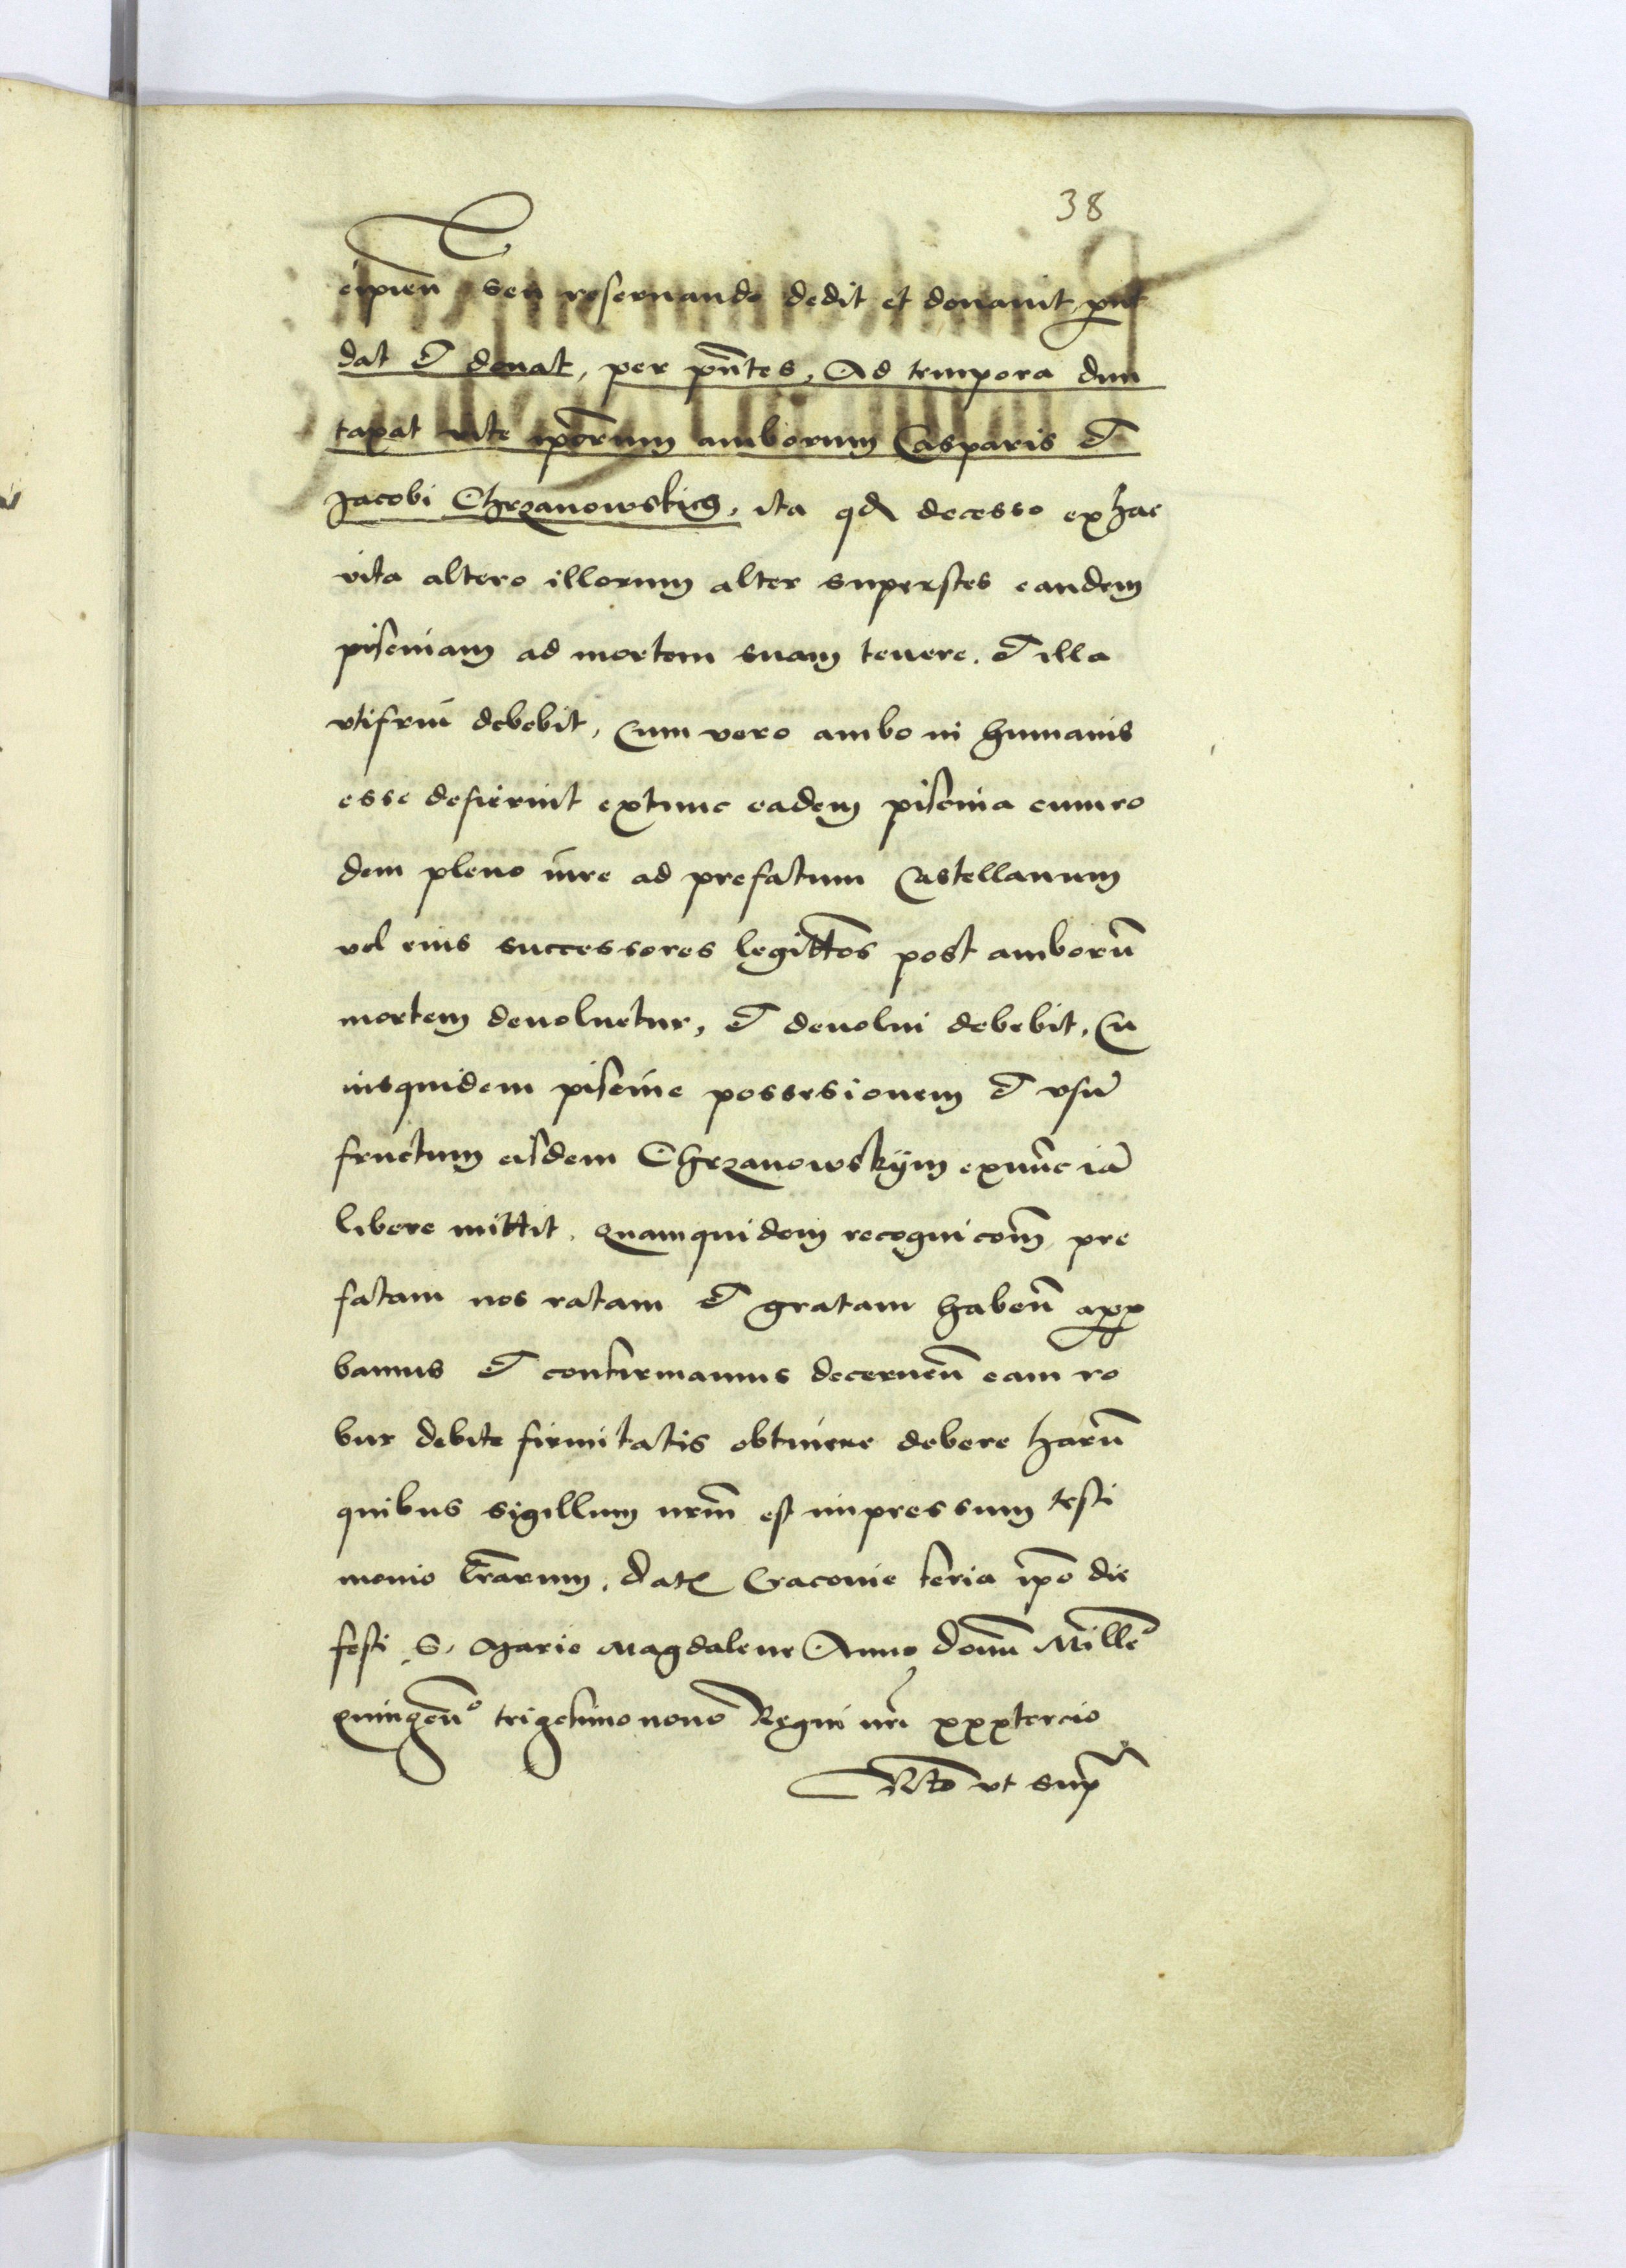 38
cipien̄ seu reseruando dedit et donauit, put̄
dat et donat, per pn̄tes, Ad tempora dun
taxat vite ip̄orum amborum Casparis et
Jacobi Chrzanowskich, ita qd decesso ex hac
vita altero illorum alter superstes eandem
piscinam ad mortem suam tenere. et illa
vtifrui debebit, Cum vero ambo in humanis
esse desierint extunc eadem piscina eum ro
dem pleno iure ad prefatum Castellanum
vel eius successores legitt̄os post amborū
mortem deuoluetur, et deuolui debebit, Cu
iusquidem piscine possesionem et vsū
fructum eisdem Chrzanowskÿm exnūc iā
libere mittit. quamquidem recognicōm pre
fatam nos ratam et gratam haben̄ appro
bamus et confirmamus decernen̄ eam ro
bur debite firmitatis obtinere debere harū
quibus sigillum nrm̄ est impressum testi
monio lr̄arum. Dat Cracouie feria ip̄o die
festi S. Marie Magdalene Anno Domi Millē
quingen̄o trigesimo nono Regni nri xxxtercio
Rt̄o vt sup